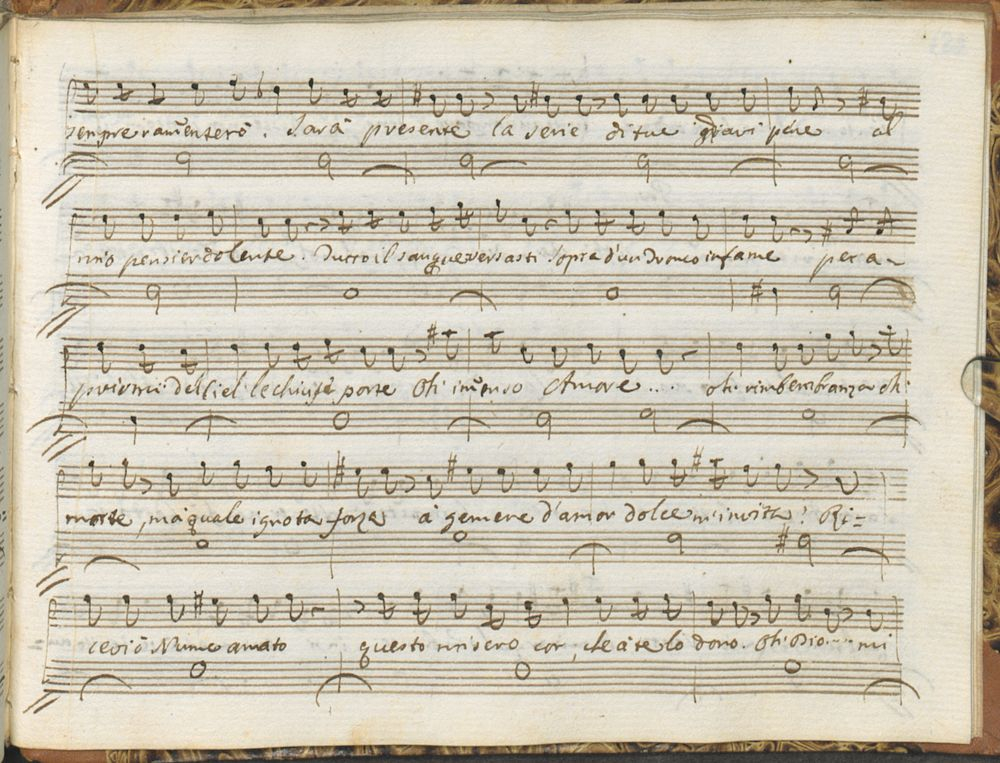 sempre ramenterò. Sarà presente la serie di tue gravi pene al
mio pensier dolente. Tutto il sangue versasti sopra d'un tronco infame per a-
prirmi del Ciel le chiuse porte Oh imenso Amore... oh rimembranza oh
morte, mà quale ignota forza à gemere d'amor dolce m'invita? Ri=
cevi ò Nume amato questo misero cor, che à te lo dono. Oh Dio... mi